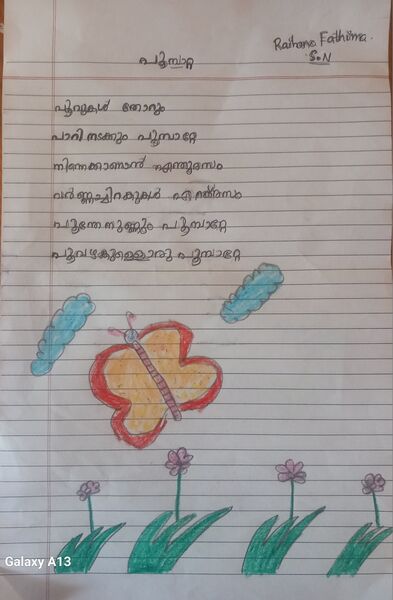 Raihana Fathima.
S.N
പൂമ്പാറ്റ
പൂവുകൾ തോറും
പാറി നടക്കും പൂമ്പാറ്റേ
നിന്നെക്കാണാൻ എന്തുരസം
വർണ്ണച്ചിറകുകൾ എന്ത് രസം
പൂന്തേനുണ്ണും പൂമ്പാറ്റേ
പൂവഴകുള്ളൊരു പൂമ്പാറ്റേ
Galaxy A13